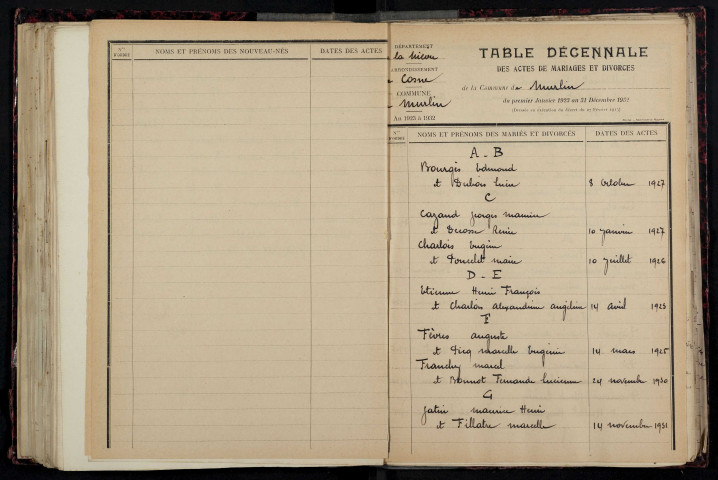 Nos D'ORDRE
NOMS ET PRÉNOMS DES NOUVEAU-NÉS
DATES DES ACTES
DÉPARTEMENT
la Nièvre
ARRONDISSEMENT
Cosne
COMMUNE
Murlin
An 1923 à 1932
TABLE DÉCENNALE
DES ACTES DE MARIAGES ET DIVORCES
de la Commune de Murlin
du premier Janvier 1923 au 31 Décembre 1932
Nos D'ORDRE
NOMS ET PRÉNOMS DES MARIÉS ET DIVORCÉS
DATES DES ACTES
A - B
Bourgès Edmond
et Dubois 8 Octobre 1927
C
Cazaud Georges Maurice
et Renée 10 Janvier 1927
Charlois Eugène
et Poncelet Marie 10 Juillet 1926
D - E
Etienne Henri François
et Charlois Alexandrine Angéline 14 avril 1923
F
Fèvres auguste
et Picq Marcelle Eugénie 14 mars 1925
Franchy Marcel
et Bonnot Fernande Lucienne 24 novembre 1930
G
Maurice Henri
et Fillatre Marcelle 14 novembre 1931